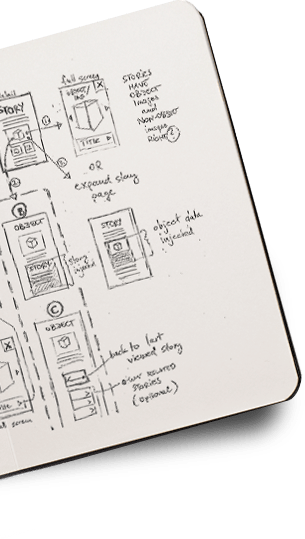 full screen
STORY
OBJECT
X
TITLE
STORIES
HAVE
OBJECT
Images
and
NON-OBJECT
images
RIGHT?
OR
expand story
page
B
OBJECT
STORY
story
injected
STORY
object data
injected
C
OBJECT
back to last
viewed story
other RELATED
STORIES
(optional)
X
screen